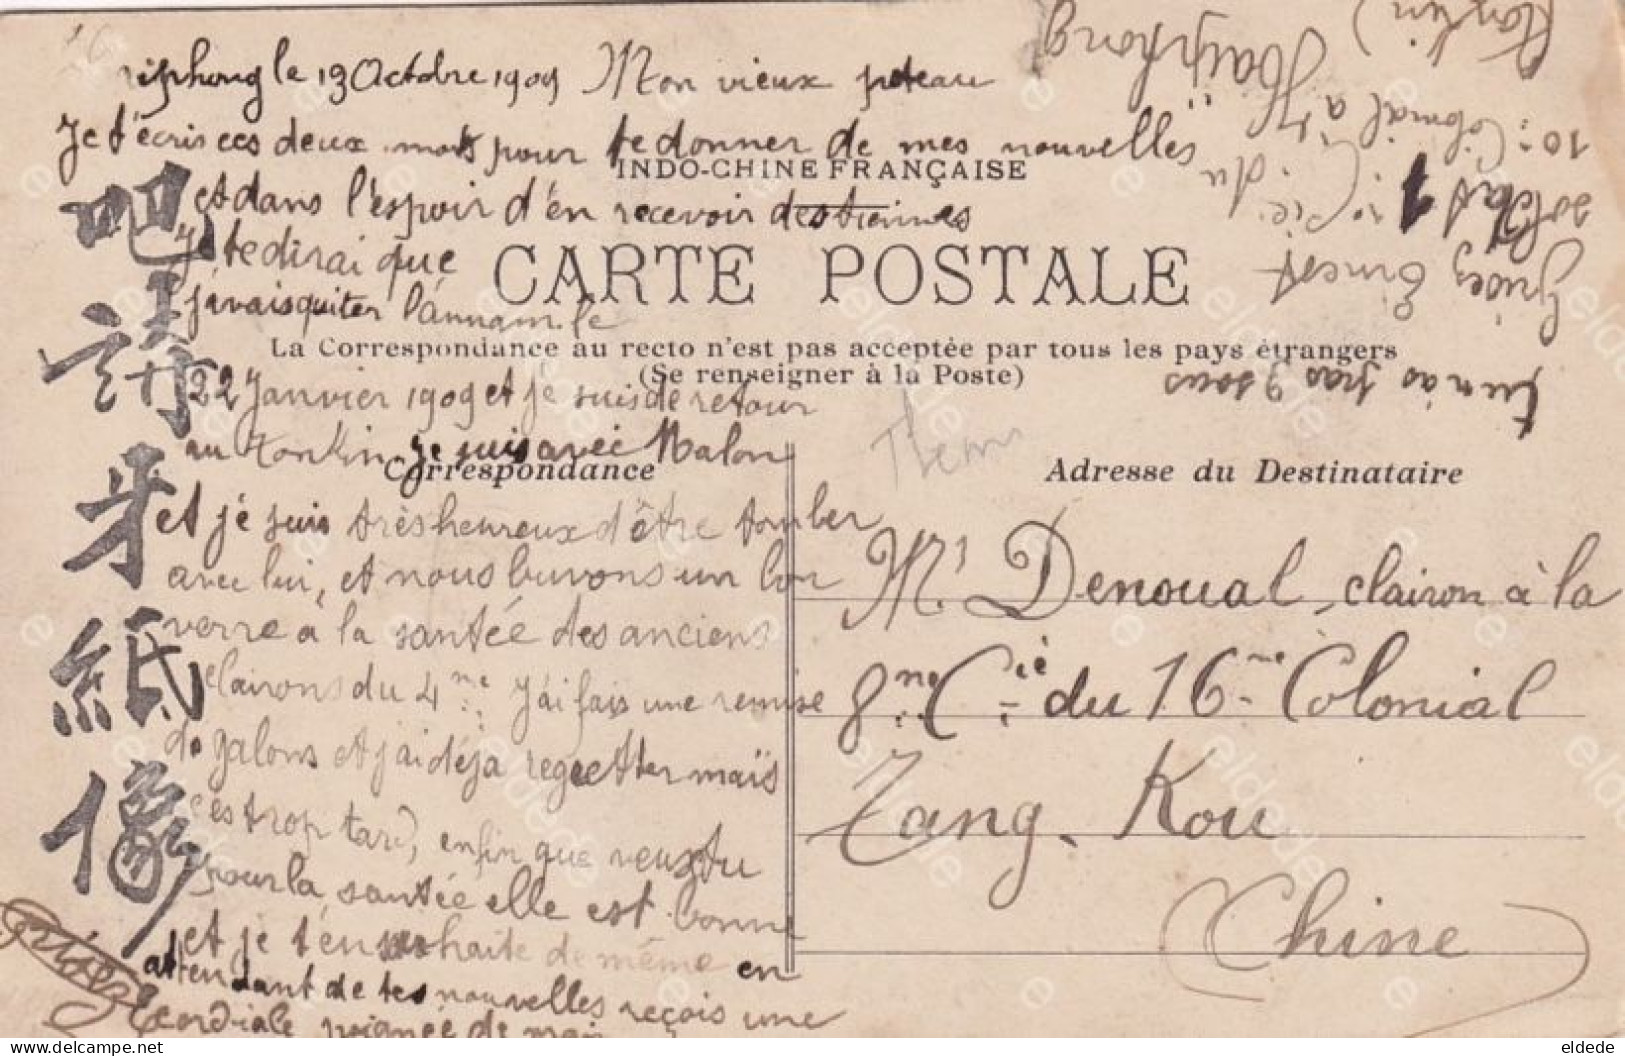 iphong le 19 Octobre 1909 Mon vieux poteau
Je t'écris ces deux mots pour te donner de mes nouvelles
INDO-CHINE FRANÇAISE
et dans l'espoir d'én recevoir des tiennes
Je te dirai que
CARTE POSTALE
j'avais quiter l'Annam le
La Correspondance au recto n'est pas acceptée par tous les pays étrangers
(Se renseigner à la Poste)
22 Janvier 1909 et je suis de retour
au Tonkin Je suis avec Malon
Correspondance
et je suis très heureux d'être tomber
avec lui, et nous buvons un bon
verre a la santée des anciens
clairons du 4me J'ai fais une remise
de galons et j'ai déja regretter maïs
c'es trop tard, enfin que veux tu
pour la santée elle est bonne
et je t'en souhaite de même en
attendant de tes nouvelles reçois une
cordiale poignée de main
Griéez
吧
請
牙
紙
像
Adresse du Destinataire
Mr Denoual, clairon à la
8me Cie du 16me Colonial
Tang-Kou
(Chine)
Griéez Ernest
soldat 1re Cie du
10e Colonial a
Haïphong
(Tonkin)
tu n'as pas 9 sous
eldede